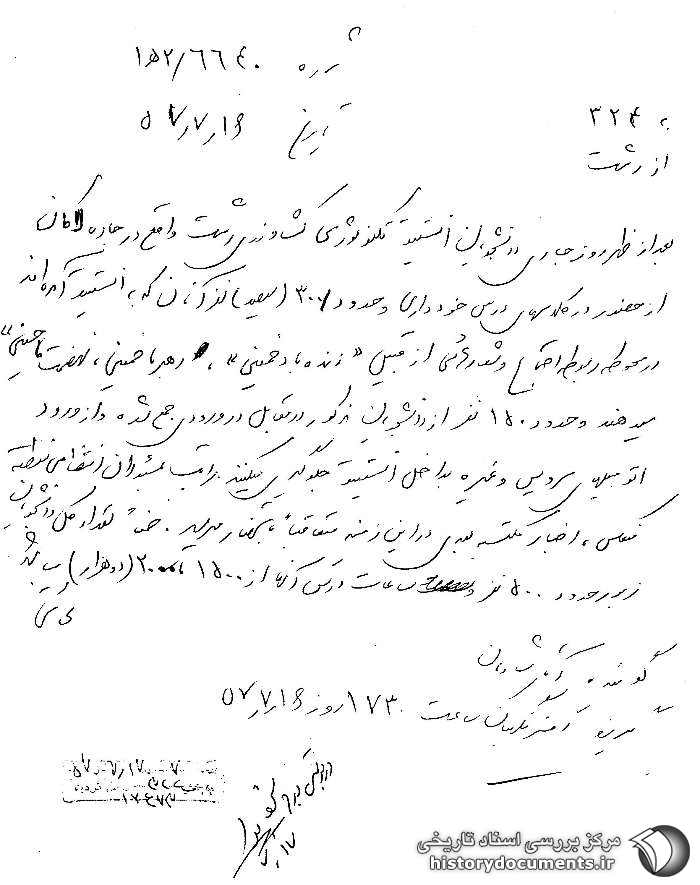 شماره ۱ﻫ۲/۶۶۴۰
تاریخ ۵۷/۷/۱۶
به ۳۲۴
از رشت
بعد از ظهر روز جاری دانشجویان انستیتو تکنولوژی کشاورزی رشت واقع در جاده لاکان
از حضور در کلاسهای درس خودداری و حدود ۳۰۰ (سیصد) نفر آنان که به انستیتو آمده‌اند
در محوطه مربوطه اجتماع و شعارهائی از قبیل «زنده باد خمینی»، رهبر ما خمینی، نهضت ما حسینی»
میدهند و حدود ۱۵۰ نفر از دانشجویان مذکور در مقابل در ورودی جمع شده و از ورود
اتومبیلهای سرویس و غیره بداخل انستیتو جلوگیری میکنند مراتب بمأموران انتظامی منطقه
منعکس، اخبار مکتسبه بعدی در این زمینه متعاقباً باستحضار میرسد. ضمناً تعداد کل دانشجویان
مزبور حدود ۵۰۰ نفر و ساعات درس آنها از ۱۵۰۰ تا ۲۰۰۰ (دوهزار) میباشد
گوینده آقای
گیرنده افسر نگهبان ساعت ۱۷۳۰ روز ۵۷/۷/۱۶
۱۷/۷
مرکز بررسی اسناد تاریخی
historydocuments.ir